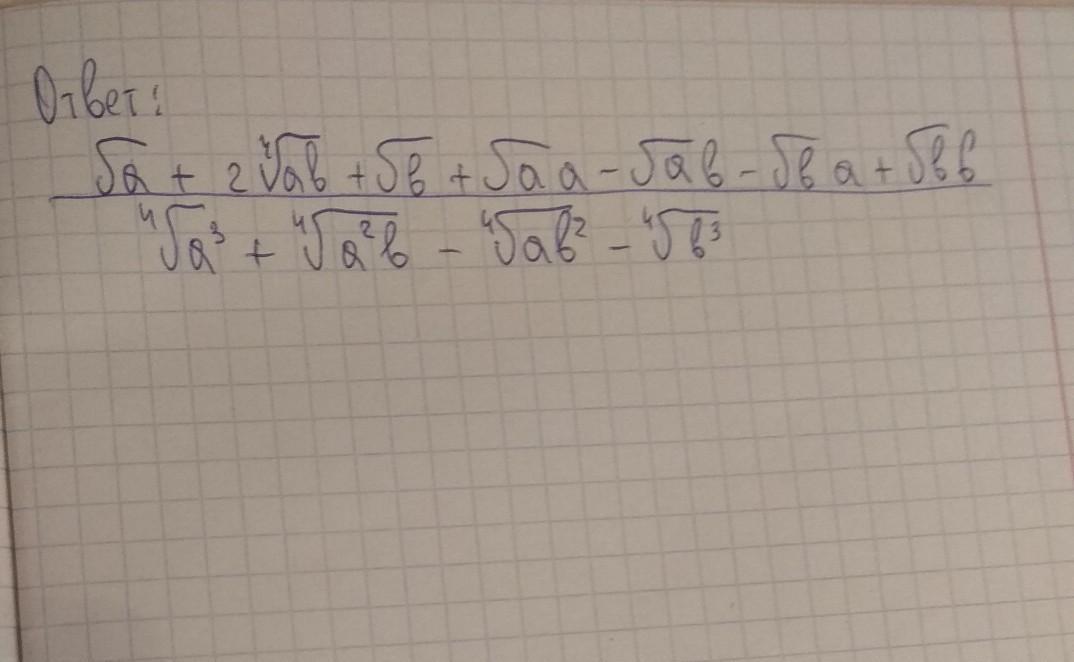 Ответ:
√a + 2∜ab + √b + √a a - √a b - √b a + √b b
∜a³ + ∜a²b - ∜ab² - ∜b³